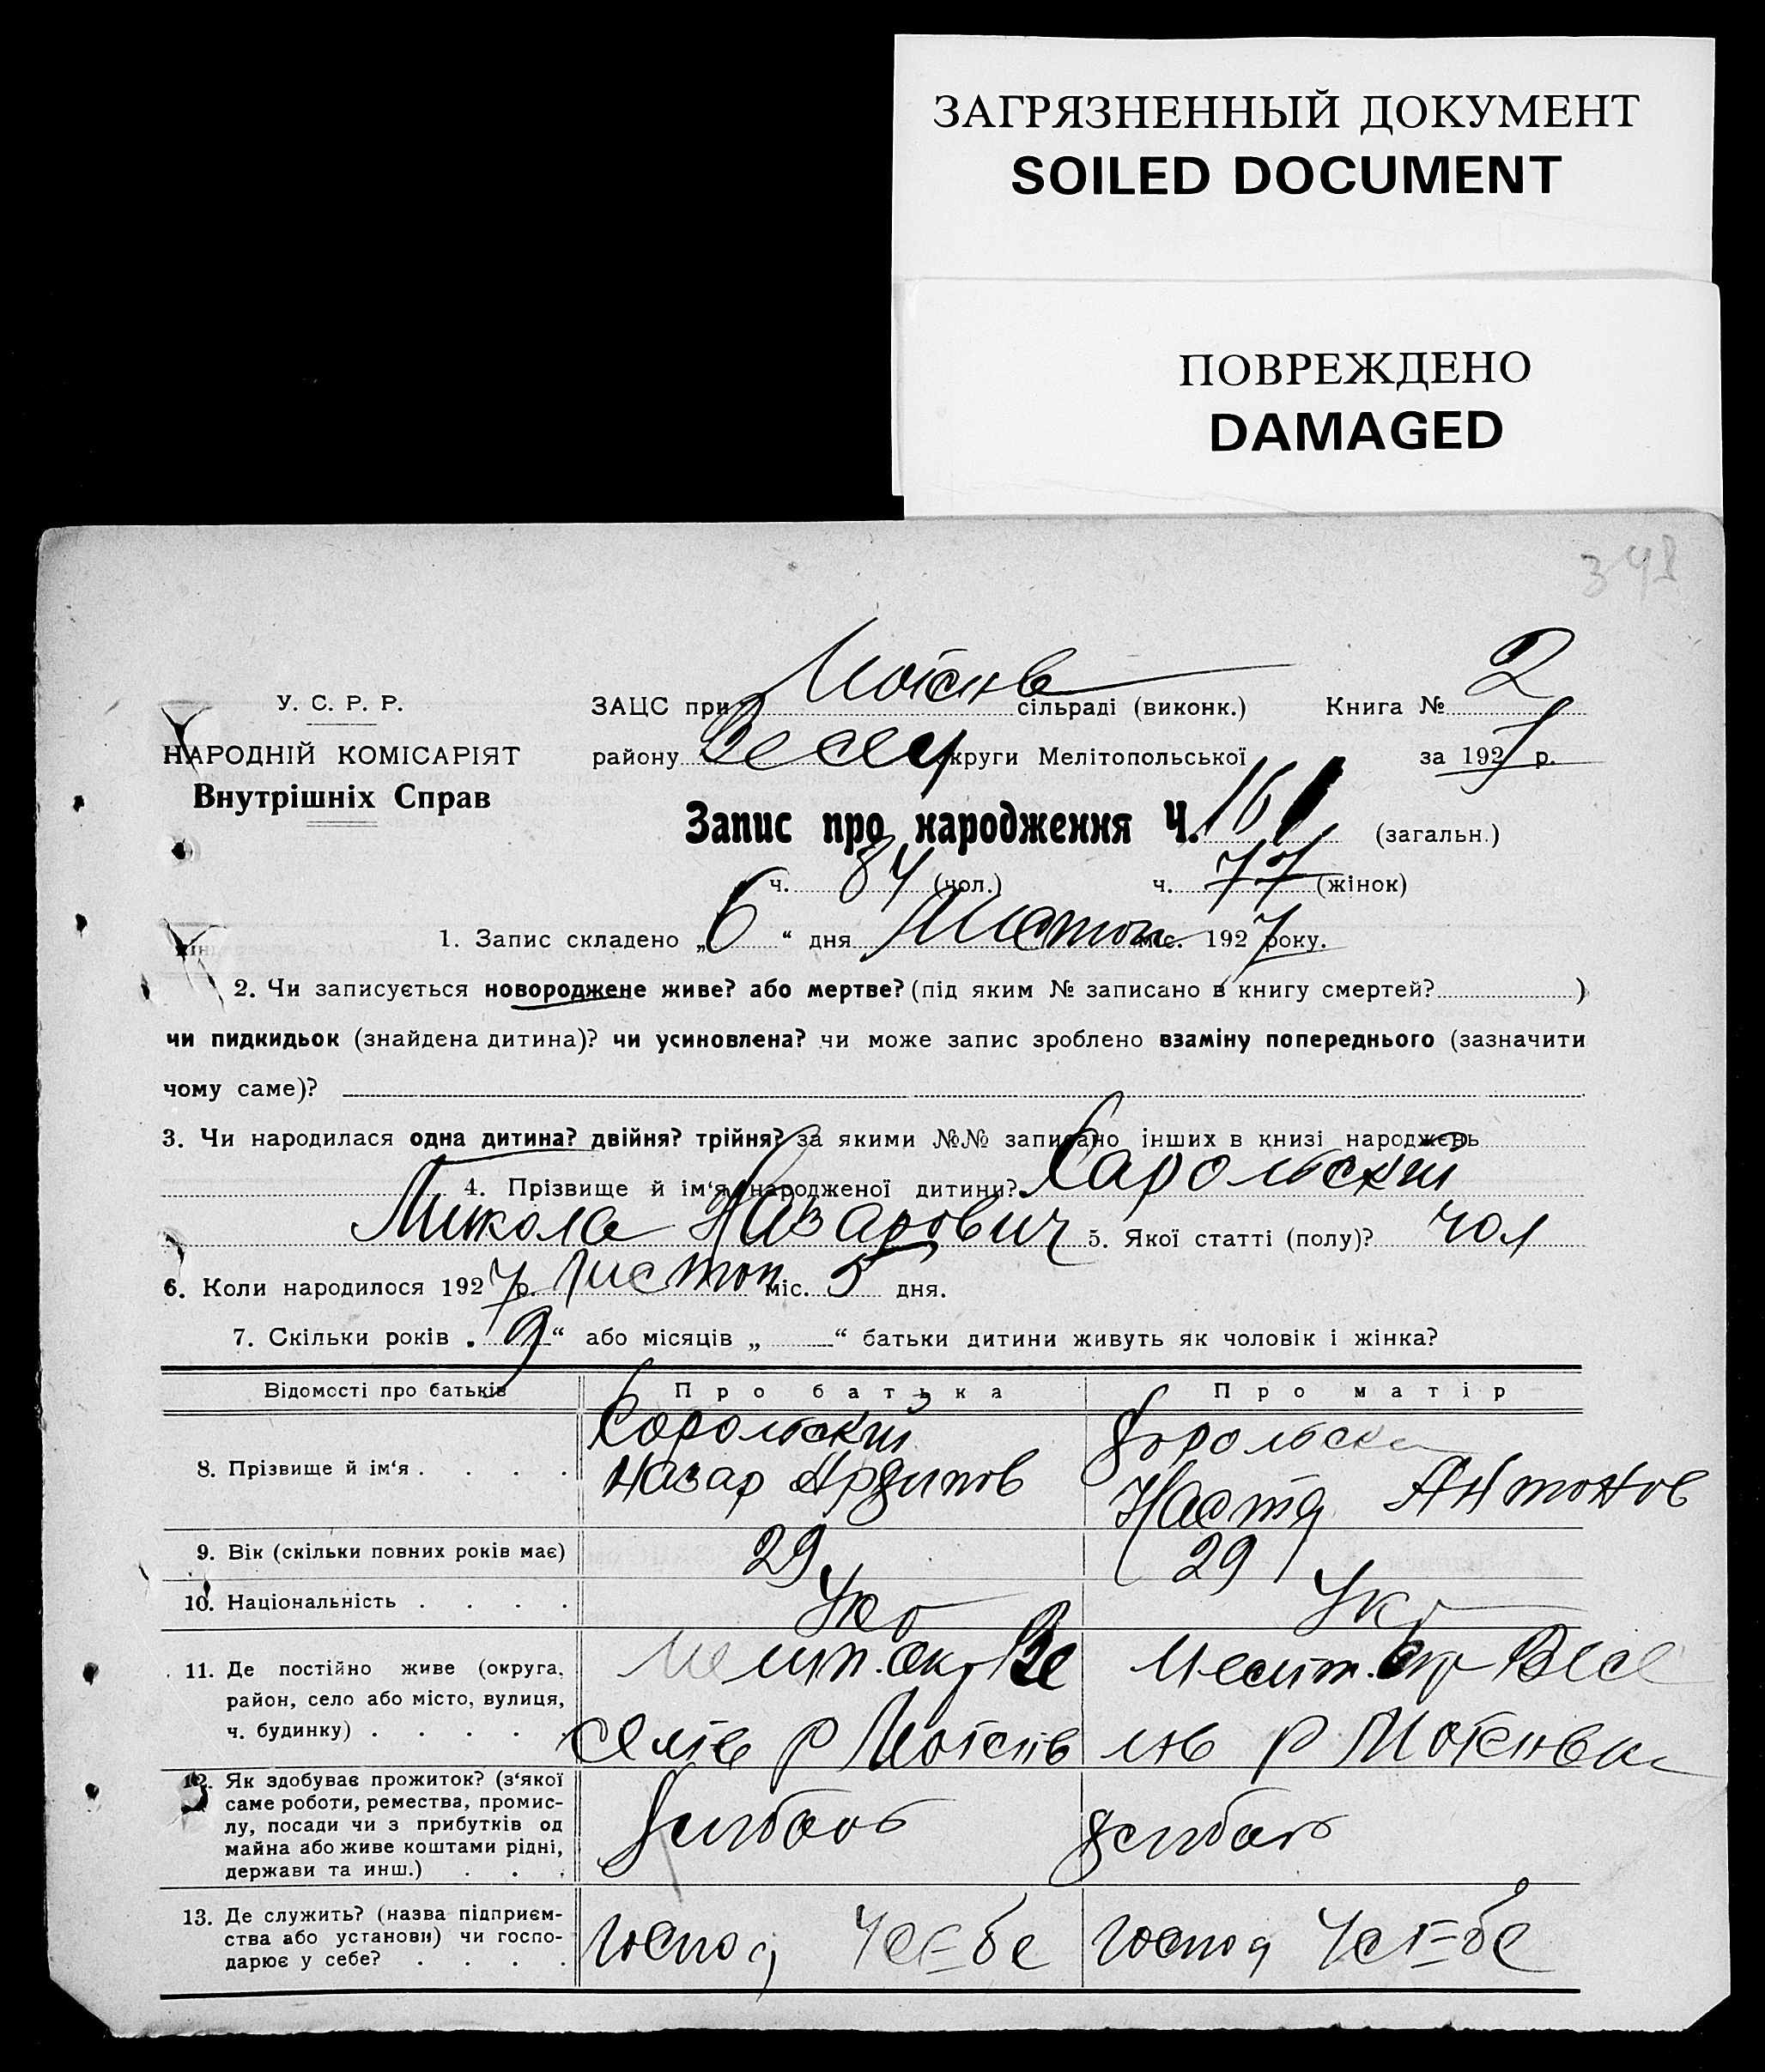 ЗАГРЯЗНЕННЫЙ ДОКУМЕНТ
SOILED DOCUMENT
ПОВРЕЖДЕНО
DAMAGED
У. С. Р. Р.
НАРОДНІЙ КОМІСАРІЯТ
Внутрішніх Справ
ЗАЦС при сільраді (виконк.) Книга № 2
району Весел округи Мелітопольської за 1927 р.
Запис про народження Ч. 161 (загальн.)
ч. 84 (чол.) ч. 77 (жінок)
1. Запис складено „6“ дня Листоп міс. 1927 року.
2. Чи записується новороджене живе? або мертве? (під яким № записано в книгу смертей? )
чи пидкидьок (знайдена дитина)? чи усиновлена? чи може запис зроблено взаміну попереднього (зазначити
чому саме)?
3. Чи народилася одна дитина? двійня? трійня? за якими №№ записано інших в книзі народжень
4. Прізвище й ім‘я народженої дитини?
Микола Назарович 5. Якої статті (полу)? чол
6. Коли народилося 1927 р. Листоп міс. 5 дня.
7. Скільки років „9“ або місяців „ “ батьки дитини живуть як чоловік і жінка?
Відомості про батьків Про батька Про матір
8. Прізвище й ім‘я . . . .
Назар Антонов
9. Вік (скільки повних років має) 29 29
10. Національність . . . . Укр Укр
11. Де постійно живе (округа,
район, село або місто, вулиця,
ч. будинку) . . . . .
Меліт. окр Ве Меліт. окр Весе
12. Як здобуває прожиток? (з‘якої
саме роботи, ремества, промис-
лу, посади чи з прибутків од
майна або живе коштами рідні,
держави та инш.) . . .
13. Де служить? (назва підприєм-
ства або установи) чи госпо-
дарює у себе? . . . .
Господ У себе Господ У себе